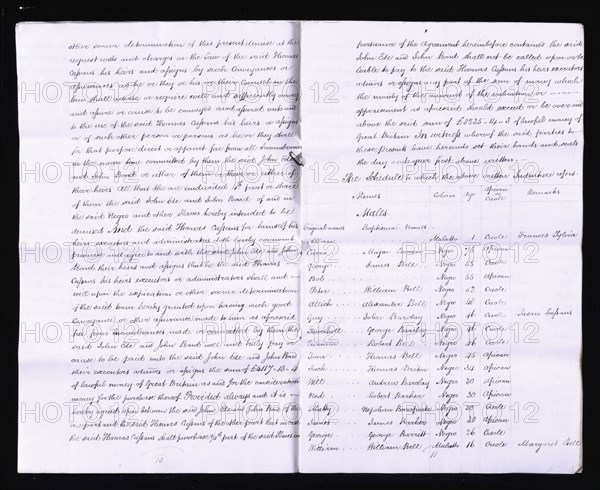 other sooner determination of this present demise at the
request costs and charges in the Law of the said Thomas
Cussans his heirs and assigns by such Conveyances or
assurances as he or they or his or their Counsel in the
Law shall advise or require well and sufficiently convey
and assure or cause to be conveyed and assured unto and
to the use of the said Thomas Cussans his heirs or assigns
or of such other person or persons as he or they shall
for that purpose direct or appoint free from all incumbrances
in the mean time committed by them the said John Ede
and John Bond or either of them or their or either of
their heirs All that the one undivided 4th part or share
of them the said John Ede and John Bond of and in
the said Negro and other Slaves hereby intended to be
demised And the said Thomas Cussans for himself his
heirs executors and administrators doth hereby covenant
promise and agree to and with the said John Ede and John
Bond their heirs and assigns that he the said Thomas
Cussans his heirs executors or administrators shall and
will upon the expiration or other sooner determination
of the said term hereby granted upon having such good
Conveyance or other assurance made to him as aforesaid
free from incumbrances made or committed by them the
said John Ede and John Bond well and truly pay or
cause to be paid unto the said John Ede and John Bond
their executors admors or assigns the sum of £4117-13-4
of lawful money of Great Britain as and for the consideration
money for the purchase thereof Provided always and it is
hereby agreed upon between the said John Ede and John Bond of the
one part and the said Thomas Cussans of the other part that in case
the said Thomas Cussans shall purchase ¼th part of the said
10
pursuance of the Agreement hereinbefore contained the said
John Ede and John Bond shall not be called upon or be
liable to pay to the said Thomas Cussans his heirs executors
admors or assigns any part of the sum of money which
the moiety of the amount of the valuation or
appraisement is aforesaid should exceed or be over and
above the said sum of £8235-14-8 of lawful money of
Great Britain In witness whereof the said parties to
these presents have hereunto set their hands and seals
the day and year first above written.
The Schedule to which the above written Indenture refers
Names Colour Age African or Creole Remarks
Males.
Original names Baptismal Names
Mulatto 1 Creole Frances Sylvia
Major Negro African
George James Bell Negro 55 Creole
Bob Negro 55 African
Peter William Bell Negro 62 Creole
Alexander Bell Negro Creole
Guy John Barclay Negro 46 Creole
George Barclay Negro Creole
Robert Bell Negro Creole
Thomas Bell Negro 45 African
Thomas Negro 34 African
Will Andrew Barclay Negro 30 African
Ned Robert Barker Negro 30 African
Napoleon Bonaparte Negro Creole
James James Barker Negro African
George George Barrett Negro 26 Creole
William William Bell Mulatto 16 Creole Margaret Bell
11